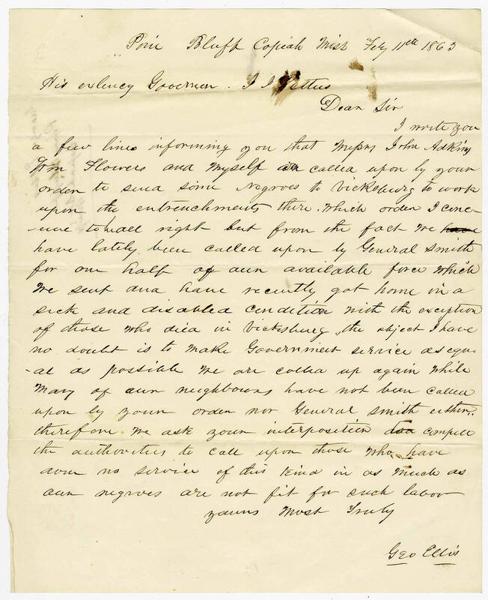 Pine Bluff Copiah Miss Feb 11th 1863
His exlency Governer. J J Pettus
Dear Sir
I write you
a few lines informing you that Messrs John Askins
Wm Flowers and myself are called upon by your
order to send some negroes to Vicksburg to work
upon the entrenchments there. Which order I conc-
ieve to all right but from the fact We have
have lately been called upon by General Smith
for one half of our available force which
We sent and have recently got home in a
sick and disabled condition with the exception
of those who died in Vicksburg the object I have
no doubt is to make Government service as equ-
al as possible We are called up again While
Many of our neighbours have not been called
upon by your order nor General Smith either.
therefore We ask your interposition compell
the authorities to call upon those who have
done no service of this kind in as much as
our negroes are not fit for such labor
yours Most Truly
Geo Ellis